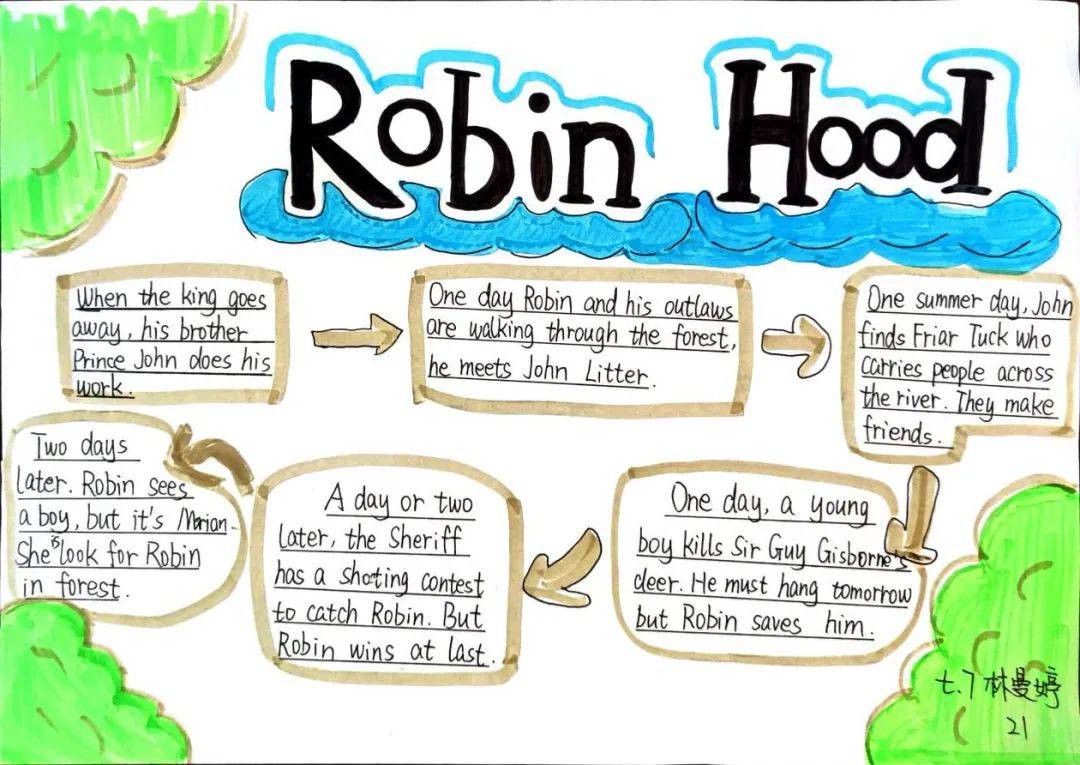 Robin Hood
When the king goes
away, his brother
Prince John does his
work.
One day Robin and his outlaws
are walking through the forest,
he meets John Litter.
One summer day, John
finds Friar Tuck who
carries people across
the river. They make
friends.
One day, a young
boy kills Sir Guy Gisborne's
deer. He must hang tomorrow
but Robin saves him.
A day or two
later, the Sheriff
has a shoting contest
to catch Robin. But
Robin wins at last.
Two days
later. Robin sees
a boy, but it's Marian.
She is look for Robin
in forest.
七.7 林曼婷
21